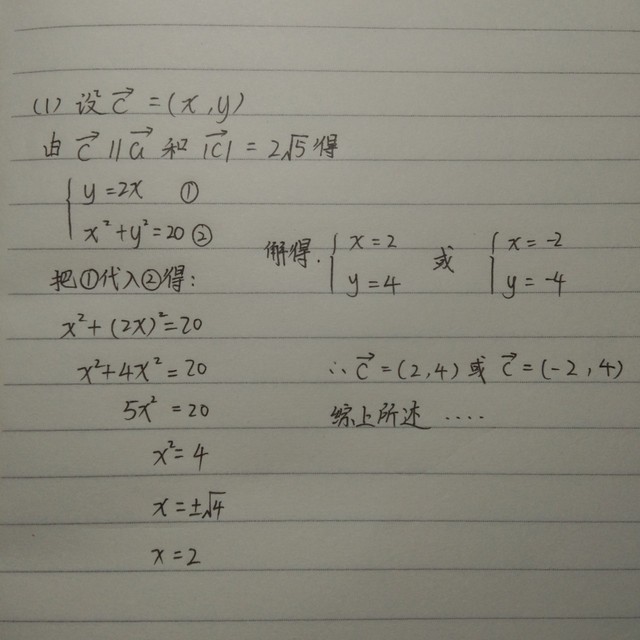 (1) 设 c⃗ = (x, y)
由 c⃗ ∥ a⃗ 和 |c⃗| = 2√5 得
{ y = 2x ①
x² + y² = 20 ②
把①代入②得:
x² + (2x)² = 20
x² + 4x² = 20
5x² = 20
x² = 4
x = ±√4
x = 2
解得. { x = 2 或 { x = -2
y = 4 y = -4
∴ c⃗ = (2, 4) 或 c⃗ = (-2, 4)
综上所述 ····